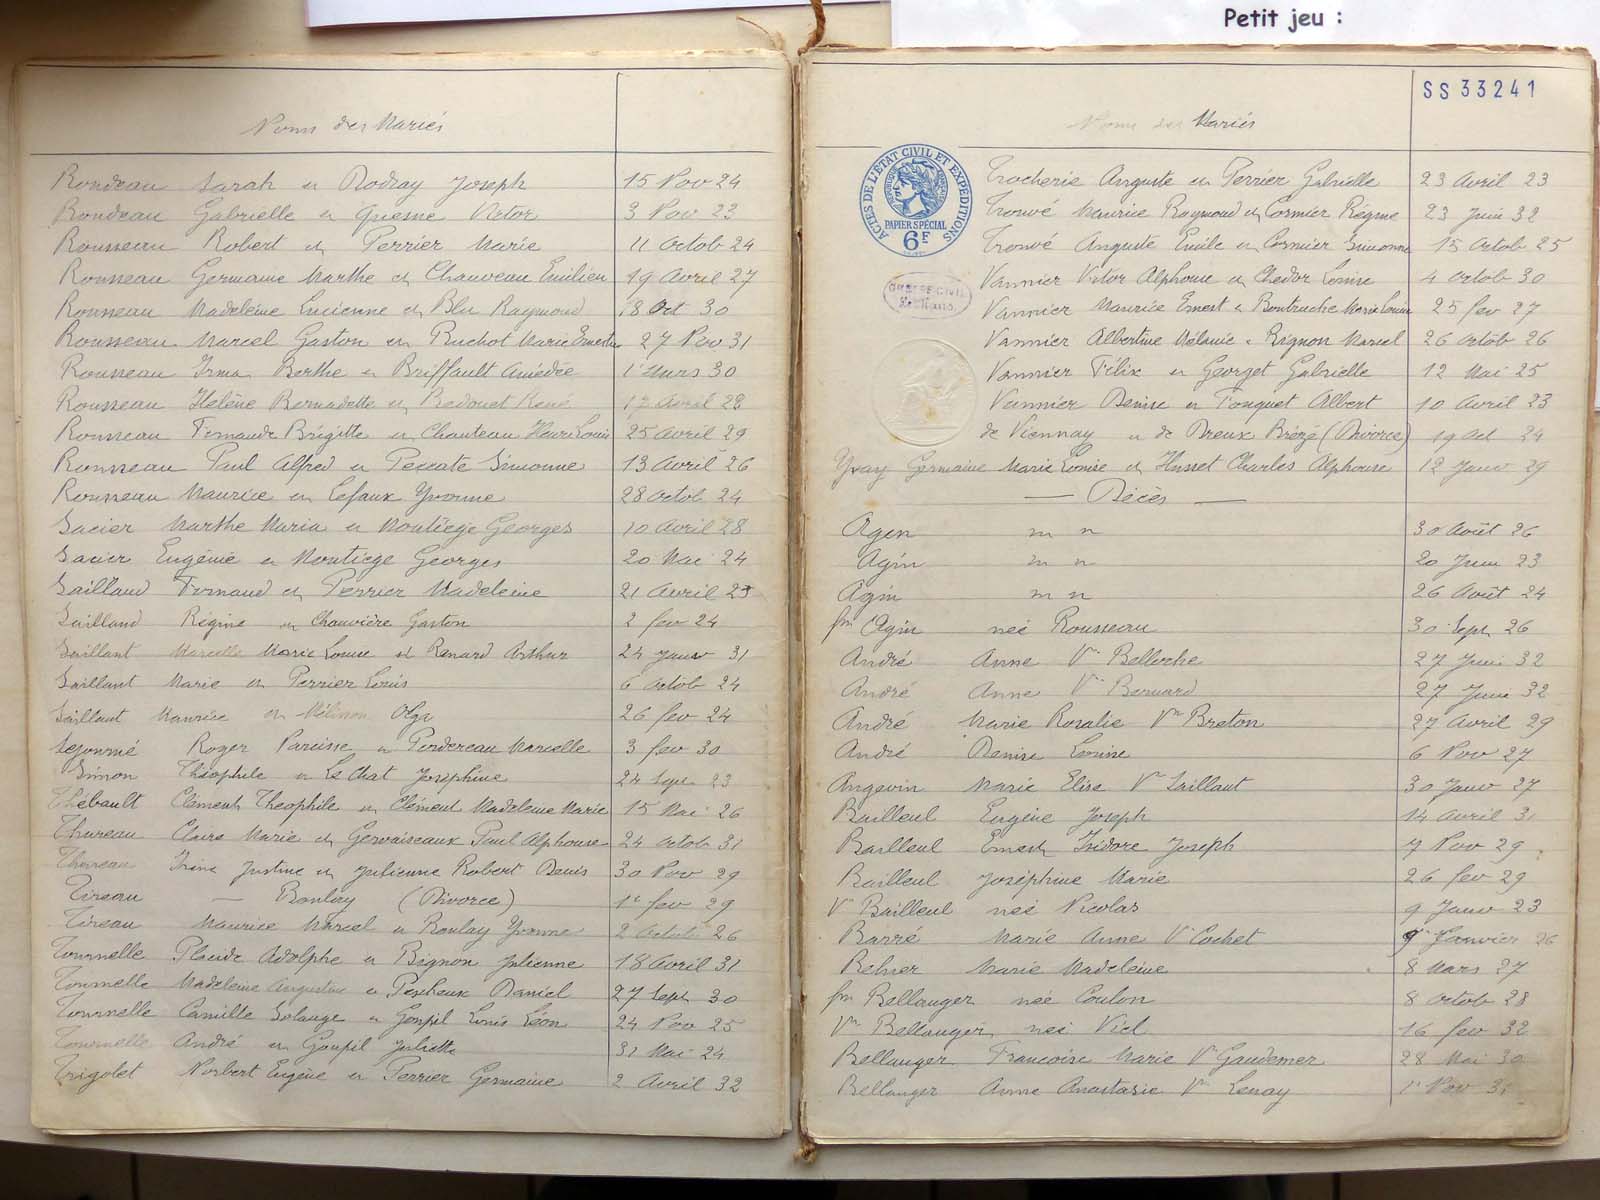 Petit jeu :
Noms des Mariés
Rondeau Sarah et Rodzay Joseph 15 Nov 24
Rondeau Gabrielle et Quesne Victor 3 Nov 23
Rousseau Robert et Perrier Marie 11 Octob 24
Rousseau Germaine Marthe et Chauveau Emilien 19 Avril 27
Rousseau Madeleine Lucienne et Blu Raymond 18 Oct 30
Rousseau Marcel Gaston et Ruchot Marie Ernestine 27 Nov 31
Rousseau Irma Berthe et Briffault Amédée 1 Mars 30
Rousseau Hélène Bernadette et Bedouet René 17 Avril 28
Rousseau Fernande Brigitte et Chanteau Henri Louis 25 Avril 29
Rousseau Paul Alfred et Peccate Simonne 13 Avril 26
Rousseau Maurice et Lefaux Yvonne 28 Octob 24
Sacier Marthe Maria et Montiège Georges 10 Avril 28
Sacier Eugénie et Montiege Georges 20 Mai 24
Sailland Fernand et Perrier Madeleine 21 Avril 23
Sailland Régine et Chauvière Gaston 2 fev 24
Saillant Marcelle Marie Louise et Renard Arthur 24 Janv 31
Saillant Marie et Perrier Louis 6 Octob 24
Saillant Maurice et Mélinon Olga 26 fev 24
Sejourné Roger Narcisse et Perdereau Marcelle 3 fev 30
Simon Théophile et Le Chat Joséphine 24 Sept 23
Thébault Clément Theophile et Clément Madeleine Marie 15 Mai 26
Thureau Claire Marie et Gervaiseaux Paul Alphonse 24 Octob 31
Thureau Irène Justine et Julienne Robert Denis 30 Nov 29
Tireau — Boulay (Divorce) 1er fev 29
Tireau Maurice Marcel et Boulay Yvonne 2 Octob 26
Tournelle Placide Adolphe et Bignon Julienne 18 Avril 31
Tournelle Madeleine Augustine et Pescheux Daniel 27 Sept 30
Tournelle Camille Solange et Goupil Louis Léon 24 Nov 25
Tournelle André et Goupil Juliette 31 Mai 24
Trigolet Norbert Eugène et Perrier Germaine 2 Avril 32
SS 33241
Noms des Mariés
ACTES DE L'ÉTAT CIVIL ET EXPÉDITIONS
PAPIER SPÉCIAL
6F
Trocherie Auguste et Perrier Gabrielle 23 Avril 23
Trouvé Maurice Raymond et Cormier Régine 23 Juin 32
Trouvé Auguste Emile et Cormier Simonne 15 Octob 25
Vannier Victor Alphonse et Chedor Louise 4 Octob 30
Vannier Maurice Ernest et Bontruche Marie Louise 25 fev 27
Vannier Albertine Mélanie et Bignon Marcel 26 Octob 26
Vannier Félix et Georget Gabrielle 12 Mai 25
Vannier Denise et Touquet Albert 10 Avril 23
de Viennay et de Dreux Brézé (Divorce) 19 Oct 24
Yvay Germaine Marie Louise et Husset Charles Alphonse 12 Janv 29
— Décès —
Agen m n 30 Août 26
Agin m n 20 Juin 23
Agin m n 26 Août 24
fme Agin née Rousseau 30 Sept 26
André Anne Ve Belloche 27 Juin 32
André Anne Ve Bernard 27 Juin 32
André Marie Rosalie Ve Breton 27 Avril 29
André Denise Louise 6 Nov 27
Angevin Marie Elise Ve Saillant 30 Janv 27
Bailleul Eugène Joseph 14 Avril 31
Bailleul Ernest Isidore Joseph 7 Nov 29
Bailleul Joséphine Marie 26 fev 29
Ve Bailleul née Nicolas 9 Janv 23
Barré Marie Anne Ve Cochet 9 Janvier 26
Behier Marie Madeleine 8 Mars 27
fme Bellanger née Coulon 8 Octob 28
Ve Bellanger née Viel 16 fev 32
Bellanger Francoise Marie Ve Gaudemer 28 Mai 30
Bellanger Anne Anastasie Ve Lenay 1er Nov 31